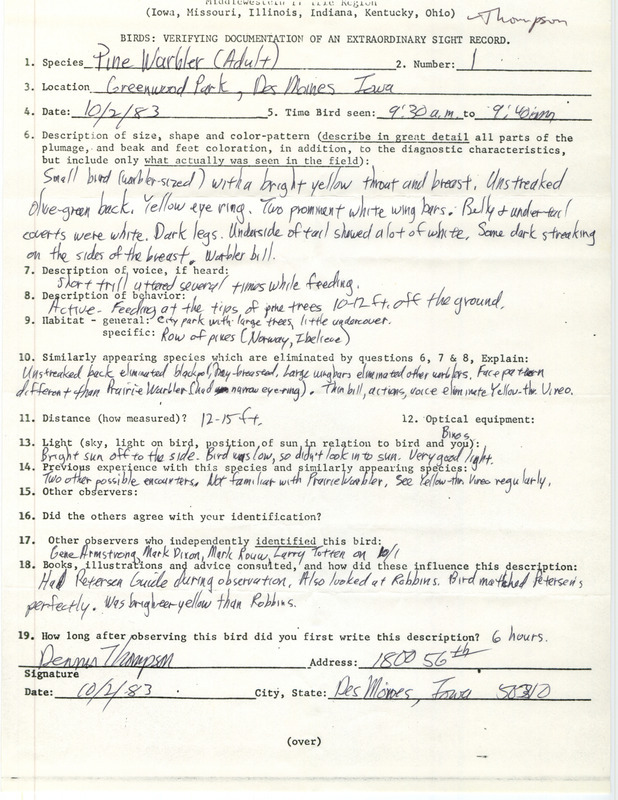 Midwestern Prairie Region
(Iowa, Missouri, Illinois, Indiana, Kentucky, Ohio) Thompson
BIRDS: VERIFYING DOCUMENTATION OF AN EXTRAORDINARY SIGHT RECORD.
1. Species Pine Warbler (Adult) 2. Number: 1
3. Location Greenwood Park, Des Moines Iowa
4. Date: 10/2/83 5. Time Bird seen: 9:30 a.m. to 9:40 am
6. Description of size, shape and color-pattern (describe in great detail all parts of the
plumage, and beak and feet coloration, in addition, to the diagnostic characteristics,
but include only what actually was seen in the field):
Small bird (warbler-sized) with a bright yellow throat and breast. Unstreaked
olive-green back. Yellow eye ring. Two prominent white wing bars. Belly & under tail
coverts were white. Dark legs. Underside of tail showed a lot of white. Some dark streaking
on the sides of the breast. Warbler bill.
7. Description of voice, if heard:
Short trill uttered several times while feeding.
8. Description of behavior:
Active - Feeding at the tips of pine trees 10-12 ft. off the ground.
9. Habitat - general: City park with large trees, little undercover.
specific: Row of pines (Norway, I believe)
10. Similarly appearing species which are eliminated by questions 6, 7 & 8, Explain:
Unstreaked back eliminated blackpol, Bay-breasted. Large wingbars eliminated other warblers. Face pattern
different than Prairie Warbler (had narrow eye-ring). Thin bill, actions, voice eliminate Yellow-thr. Vireo.
11. Distance (how measured)? 12-15 ft. 12. Optical equipment:
Binos
13. Light (sky, light on bird, position of sun in relation to bird and you):
Bright sun off to the side. Bird was low, so didn't look in to sun. Very good light.
14. Previous experience with this species and similarly appearing species:
Two other possible encounters. Not familiar with Prairie Warbler. See Yellow-thr. Vireo regularly.
15. Other observers:
16. Did the others agree with your identification?
17. Other observers who independently identified this bird:
Gene Armstrong, Mark Dixon, Mark Rouw, Larry Totten on 10/1
18. Books, illustrations and advice consulted, and how did these influence this description:
Had Petersen Guide during observation. Also looked at Robbins. Bird matched Petersen's
perfectly. Was brighter yellow than Robbins.
19. How long after observing this bird did you first write this description? 6 hours.
Dennis Thompson Address: 1800 56th
Signature
Date: 10/2/83 City, State: Des Moines, Iowa 50310
(over)